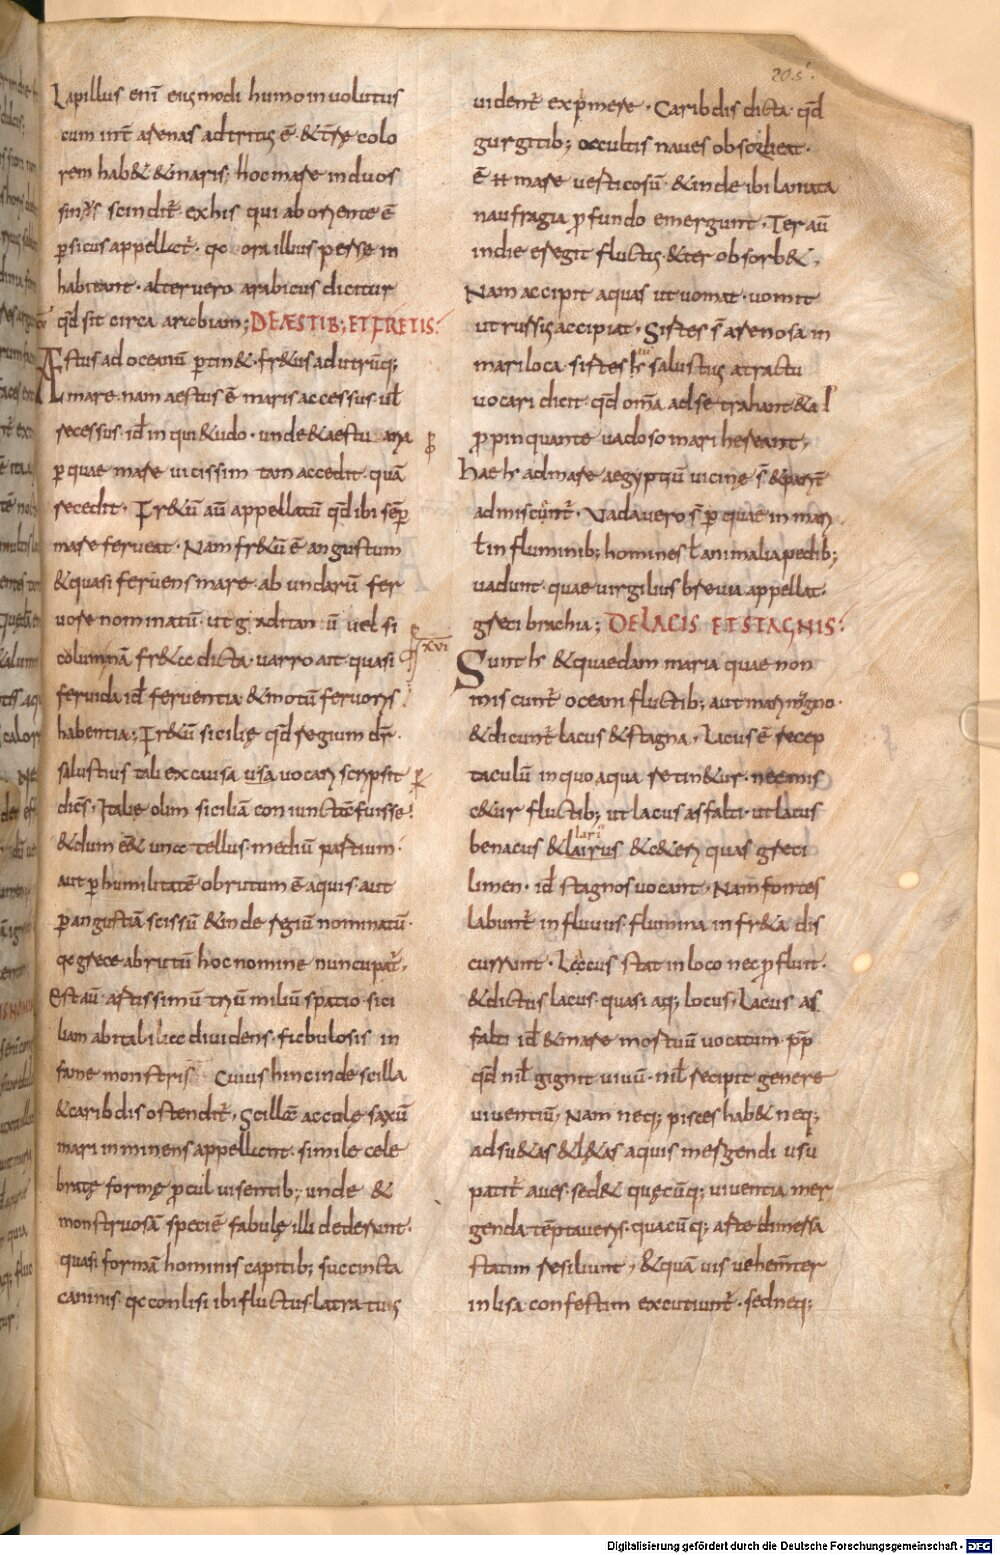 205.
Lapillus eni̅ eiusmodi humo inuolutus
cum int̅ arenas adtritus ē· & t̅re colo
rem hab& & maris; hoc mare induos
sinus scindit̅ ex his qui ab oriente ē
ꝑsicus appellat̅· qa ora illius perse in
habitant· alter uero arabicus dicitur
qd̅ sit circa arabiam; DE ÆSTIB; ET FRETIS·
Æstus ad oceanū ꝑtin&· fr&us ad utrūq;
mare· nam aestus ē maris accessus ul̅
recessus· id̅ inqui&udo· unde & aestuaria
ꝑ quae mare uicissim tam accedit quā
recedit· Fr&ū au̅ appellatū qd̅ ibi sēꝑ
mare ferueat· Nam fr&ū ē angustum
& quasi feruens mare· ab undarū fer
uore nominatū· ut gaditanū uel si
XVI
columnā fr&a dicta· uarro ait quasi
feruida id̅ feruentia & motū feruoris
habentia; Fr&ū sicilię qd̅ regium dr̅·
salustius tali ex causa uocari scripsit
dicēs· Italię olim siciliā coniunctā fuisse·
& dum ēs& una tellus· mediū spatium·
aut ꝑ humilitatē obrutum ē aquis aut
ꝑ angustiā scissū & inde regiū nominatū·
qa grece abrutū hoc nomine nuncupat̅·
Est au̅ artissimū triū miliū spatio sici
liam ab italia diuidens· fabulosis in
fame monstris Cuius hinc inde scilla
& caribdis ostendit̅· Scillā accole saxū
mari inminens appellant· simile cele
bratę formę ꝓcul uisentib; unde &
monstruosā speciē fabulę illi dederunt·
quasi formā hominis capitib; succincta
caninis· qa conlisi ibi fluctus latratus
uident̅ exprimere· Caribdis dicta· qd̅
gurgitib; occultis naues obsorbeat·
ē n̅ mare uerticosū· & inde ibi laniata
naufragia ꝓfundo emergunt· Ter au̅
in die eregit fluctus· & ter obsorb&·
Nam accipit aquas ut uomat· uomit
ut rursus accipiat· Sirtes s̅ arenosa in
mari loca· sirtes salustius a tractu
uocari dicit· qd̅ om̅a ad se trahant & a
ꝓpinquante uadoso mari hereant·
hae ad mare aegyptiū uicinę s̅
admiscunt̅· Vada uero s̅ ꝑ quae in mari
l̅ in fluminib; homines l̅ animalia pedib;
uadunt· quae uirgilius breuia appellat·
greci brachia; DE LACIS ET STAGNIS·
Sunt & quaedam maria quae non
miscunt̅ oceani fluctib; aut mari magno·
& dicunt̅ lacus & stagna· Lacus ē recep
taculū in quo aqua retin&ur· nec mis
c&ur fluctib; ut lacus asfalti· ut lacus
benacus & larius & c&eri quas greci
limen· id̅ stagnos uocant· Nam fontes
labunt̅ in fluuius· flumina in fr&a dis
currunt· Lacus stat in loco nec ꝓfluit·
& dictus lacus· quasi aq; locus· Lacus as
falti id̅ & mare mortuū uocatum· ꝓp̅
qd̅ nil̅ gignit uiuū· nil̅ recipit genere
uiuentiū· Nam neq; pisces hab& neq;
adsu&as & l&as aquis mergendi usu
patit̅ aues· sed & quęcūq; uiuentia mer
genda tēptaueris· quacūq; arte dimersa
statim resiliunt· & quāuis uehem̅ter
inlisa confestim excutiunt̅· sed neq;
Digitalisierung gefördert durch die Deutsche Forschungsgemeinschaft - DFG